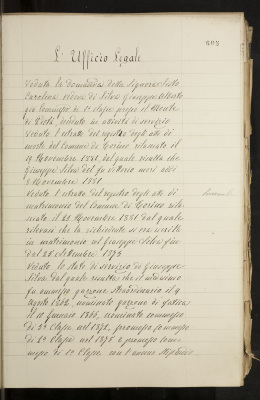 L'Ufficio Legale
Veduta la domanda della Signora
Carolina vedova di Silva Giuseppe Alberto
già commesso di 1ª classe presso il Monte
di Pietà, morto in attività di servizio
Veduto l'estratto del registro degli atti di
morte del Comune di Torino rilasciato il
19 Novembre 1881, dal quale risulta che
Giuseppe Silva del fu morì addì
9 Novembre 1881
Veduto l'estratto del registro degli atti di
matrimonio del Comune di Torino rila-
sciato il 21 Novembre 1881 dal quale
rilevasi che la richiedente si era unita
in matrimonio col Giuseppe Silva fin
dal 25 Settembre 1873
Veduto lo stato di servizio di Giuseppe
Silva dal quale risulta che il medesimo
fu ammesso garzone straordinario il 9
Agosto 1862, nominato garzone di
il 1º Gennaio 1865, nominato commesso
di 3ª classe nel 1872, promosso commesso
di 2ª classe nel 1875 e promosso com-
messo di 1ª classe con l'annuo stipendio